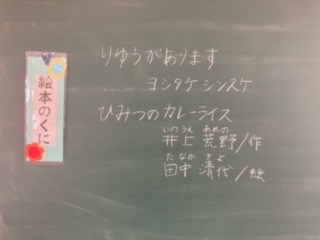 絵本のくに
りゆうがあります
ヨシタケ シンスケ
ひみつのカレーライス
いのうえ あれの
井上 荒野/作
たなか きよ
田中 清代/絵